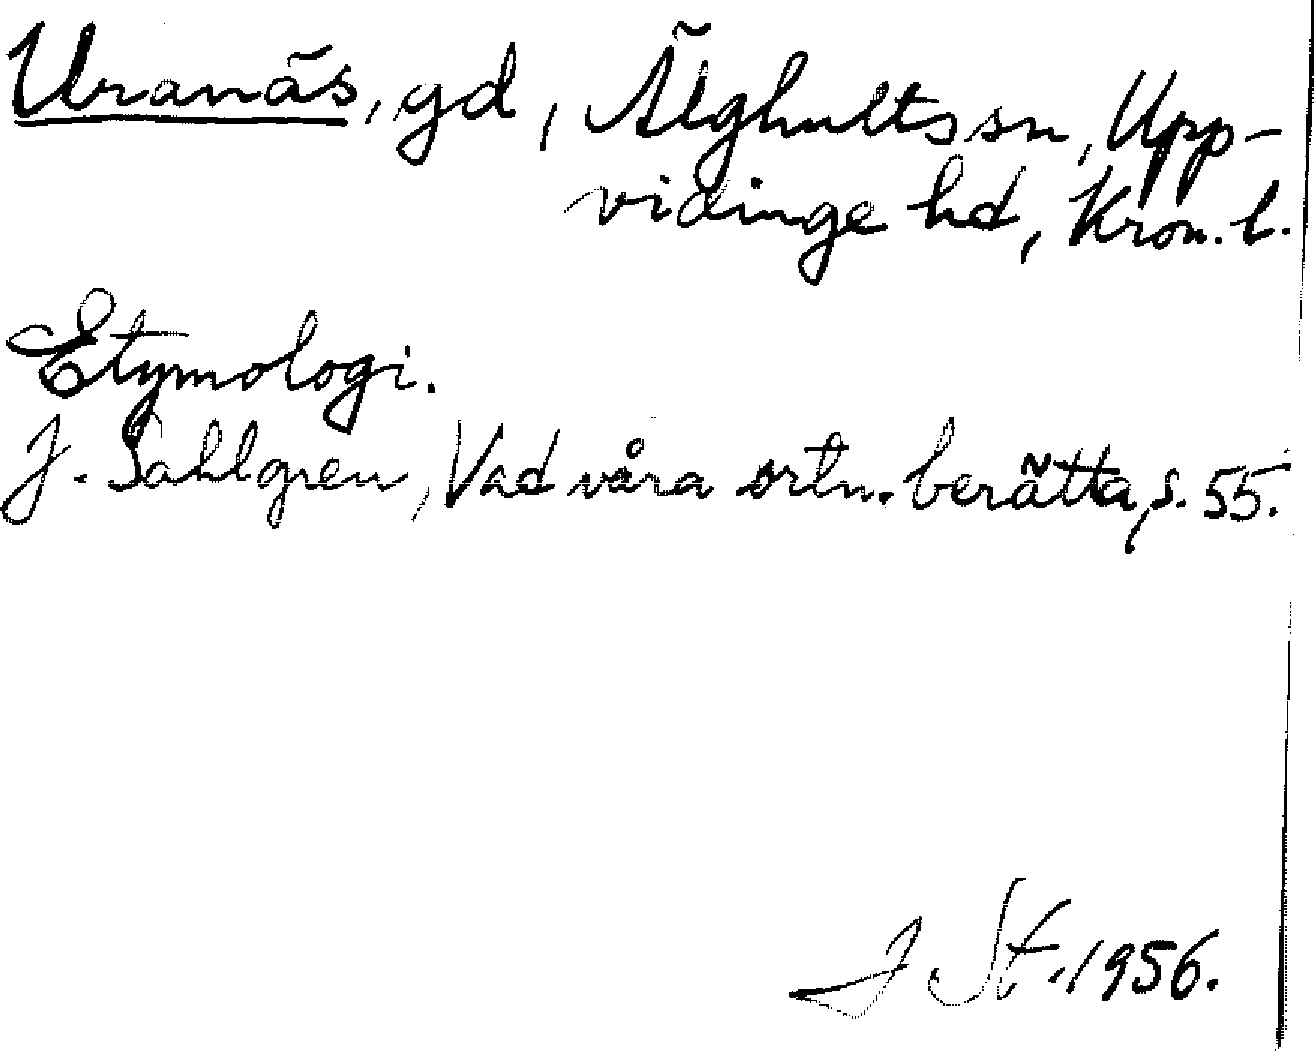 Uranäs, gd, Älghults sn, Upp-
vidinge hd, Kron. l.
Etymologi.
J. Sahlgren, Vad våra ortn. berätta, s. 55.
J St. 1956.